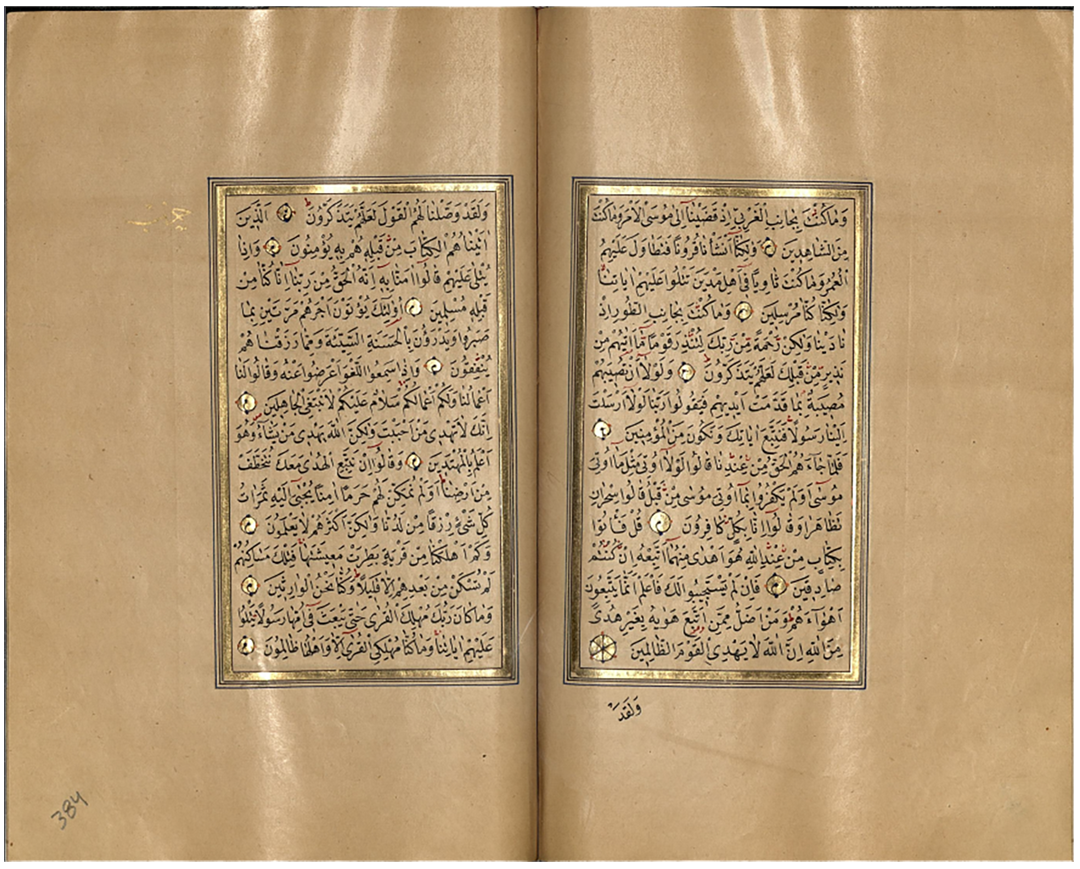 وَمَا كُنْتَ بِجَانِبِ الْغَرْبِيِّ اِذْ قَضَيْنَا اِلٰى مُوسَى الْاَمْرَ وَمَا كُنْتَ
مِنَ الشَّاهِدِينَ وَلٰكِنَّا اَنْشَأْنَا قُرُونًا فَتَطَاوَلَ عَلَيْهِمُ
الْعُمُرُ وَمَا كُنْتَ ثَاوِيًا فِى اَهْلِ مَدْيَنَ تَتْلُوا عَلَيْهِمْ اٰيَاتِنَا
وَلٰكِنَّا كُنَّا مُرْسِلِينَ وَمَا كُنْتَ بِجَانِبِ الطُّورِ اِذْ
نَادَيْنَا وَلٰكِنْ رَحْمَةً مِنْ رَبِّكَ لِتُنْذِرَ قَوْمًا مَا اَتٰيهُمْ مِنْ
نَذِيرٍ مِنْ قَبْلِكَ لَعَلَّهُمْ يَتَذَكَّرُونَ وَلَوْلَا اَنْ تُصِيبَهُمْ
مُصِيبَةٌ بِمَا قَدَّمَتْ اَيْدِيهِمْ فَيَقُولُوا رَبَّنَا لَوْلَا اَرْسَلْتَ
اِلَيْنَا رَسُولًا فَنَتَّبِعَ اٰيَاتِكَ وَنَكُونَ مِنَ الْمُؤْمِنِينَ
فَلَمَّا جَاءَهُمُ الْحَقُّ مِنْ عِنْدِنَا قَالُوا لَوْلَا اُوتِىَ مِثْلَ مَا اُوتِىَ
مُوسٰى اَوَلَمْ يَكْفُرُوا بِمَا اُوتِىَ مُوسٰى مِنْ قَبْلُ قَالُوا سِحْرَانِ
تَظَاهَرَا وَقَالُوا اِنَّا بِكُلٍّ كَافِرُونَ قُلْ فَأْتُوا
بِكِتَابٍ مِنْ عِنْدِ اللّٰهِ هُوَ اَهْدٰى مِنْهُمَا اَتَّبِعْهُ اِنْ كُنْتُمْ
صَادِقِينَ فَاِنْ لَمْ يَسْتَجِيبُوا لَكَ فَاعْلَمْ اَنَّمَا يَتَّبِعُونَ
اَهْوَاءَهُمْ وَمَنْ اَضَلُّ مِمَّنِ اتَّبَعَ هَوٰيهُ بِغَيْرِ هُدًى
مِنَ اللّٰهِ اِنَّ اللّٰهَ لَا يَهْدِى الْقَوْمَ الظَّالِمِينَ
وَلَقَدْ
وَلَقَدْ وَصَّلْنَا لَهُمُ الْقَوْلَ لَعَلَّهُمْ يَتَذَكَّرُونَ اَلَّذِينَ
اٰتَيْنَاهُمُ الْكِتَابَ مِنْ قَبْلِهِ هُمْ بِهِ يُؤْمِنُونَ وَاِذَا
يُتْلٰى عَلَيْهِمْ قَالُوا اٰمَنَّا بِهِ اِنَّهُ الْحَقُّ مِنْ رَبِّنَا اِنَّا كُنَّا مِنْ
قَبْلِهِ مُسْلِمِينَ اُولٰئِكَ يُؤْتَوْنَ اَجْرَهُمْ مَرَّتَيْنِ بِمَا
صَبَرُوا وَيَدْرَؤُنَ بِالْحَسَنَةِ السَّيِّئَةَ وَمِمَّا رَزَقْنَاهُمْ
يُنْفِقُونَ وَاِذَا سَمِعُوا اللَّغْوَ اَعْرَضُوا عَنْهُ وَقَالُوا لَنَا
اَعْمَالُنَا وَلَكُمْ اَعْمَالُكُمْ سَلَامٌ عَلَيْكُمْ لَا نَبْتَغِى الْجَاهِلِينَ
اِنَّكَ لَا تَهْدِى مَنْ اَحْبَبْتَ وَلٰكِنَّ اللّٰهَ يَهْدِى مَنْ يَشَاءُ وَهُوَ
اَعْلَمُ بِالْمُهْتَدِينَ وَقَالُوا اِنْ نَتَّبِعِ الْهُدٰى مَعَكَ نُتَخَطَّفْ
مِنْ اَرْضِنَا اَوَلَمْ نُمَكِّنْ لَهُمْ حَرَمًا اٰمِنًا يُجْبٰى اِلَيْهِ ثَمَرَاتُ
كُلِّ شَىْءٍ رِزْقًا مِنْ لَدُنَّا وَلٰكِنَّ اَكْثَرَهُمْ لَا يَعْلَمُونَ
وَكَمْ اَهْلَكْنَا مِنْ قَرْيَةٍ بَطِرَتْ مَعِيشَتَهَا فَتِلْكَ مَسَاكِنُهُمْ
لَمْ تُسْكَنْ مِنْ بَعْدِهِمْ اِلَّا قَلِيلًا وَكُنَّا نَحْنُ الْوَارِثِينَ
وَمَا كَانَ رَبُّكَ مُهْلِكَ الْقُرٰى حَتّٰى يَبْعَثَ فِى اُمِّهَا رَسُولًا يَتْلُوا
عَلَيْهِمْ اٰيَاتِنَا وَمَا كُنَّا مُهْلِكِى الْقُرٰى اِلَّا وَاَهْلُهَا ظَالِمُونَ
384